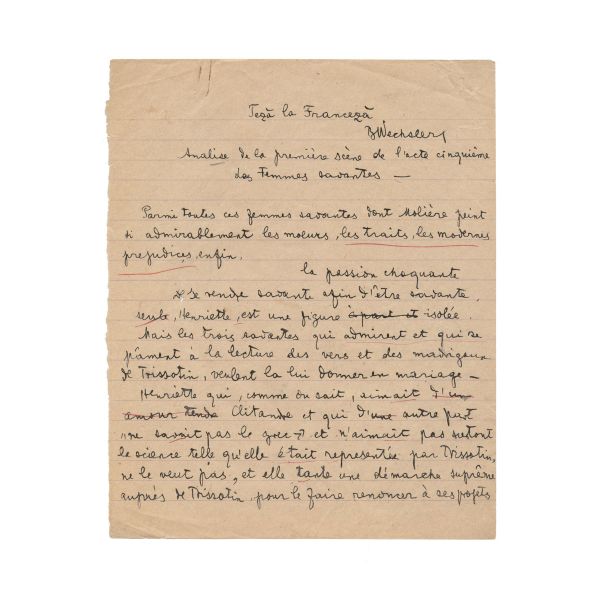 Teză la Franceză
B Wechsler
Analise de la première scène de l'acte cinquième
des Femmes savantes —
Parmi toutes ces femmes savantes dont Molière peint
si admirablement les moeurs, les traits, les modernes
prejudices, enfin.
la passion choquante
de se rendre savante afin d'être savante,
seule, Henriette, est une figure à part et isolée.
Mais les trois savantes qui admirent et qui se
pâment à la lecture des vers et des madrigeux
de Trissotin, veulent la lui donner en mariage —
Henriette qui, comme on sait, aimait d'un
amour tende Clitandre et qui d'une autre part
"ne savait pas le grec" et n'aimait pas surtout
le science telle qu'elle était representée par Trissotin,
ne le veut pas, et elle tante une démarche suprême
auprès de Trissotin, pour le faire renoncer à ses projets